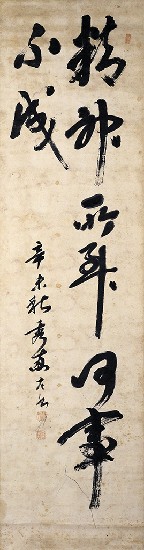 精神所到何事
不成
辛未秋